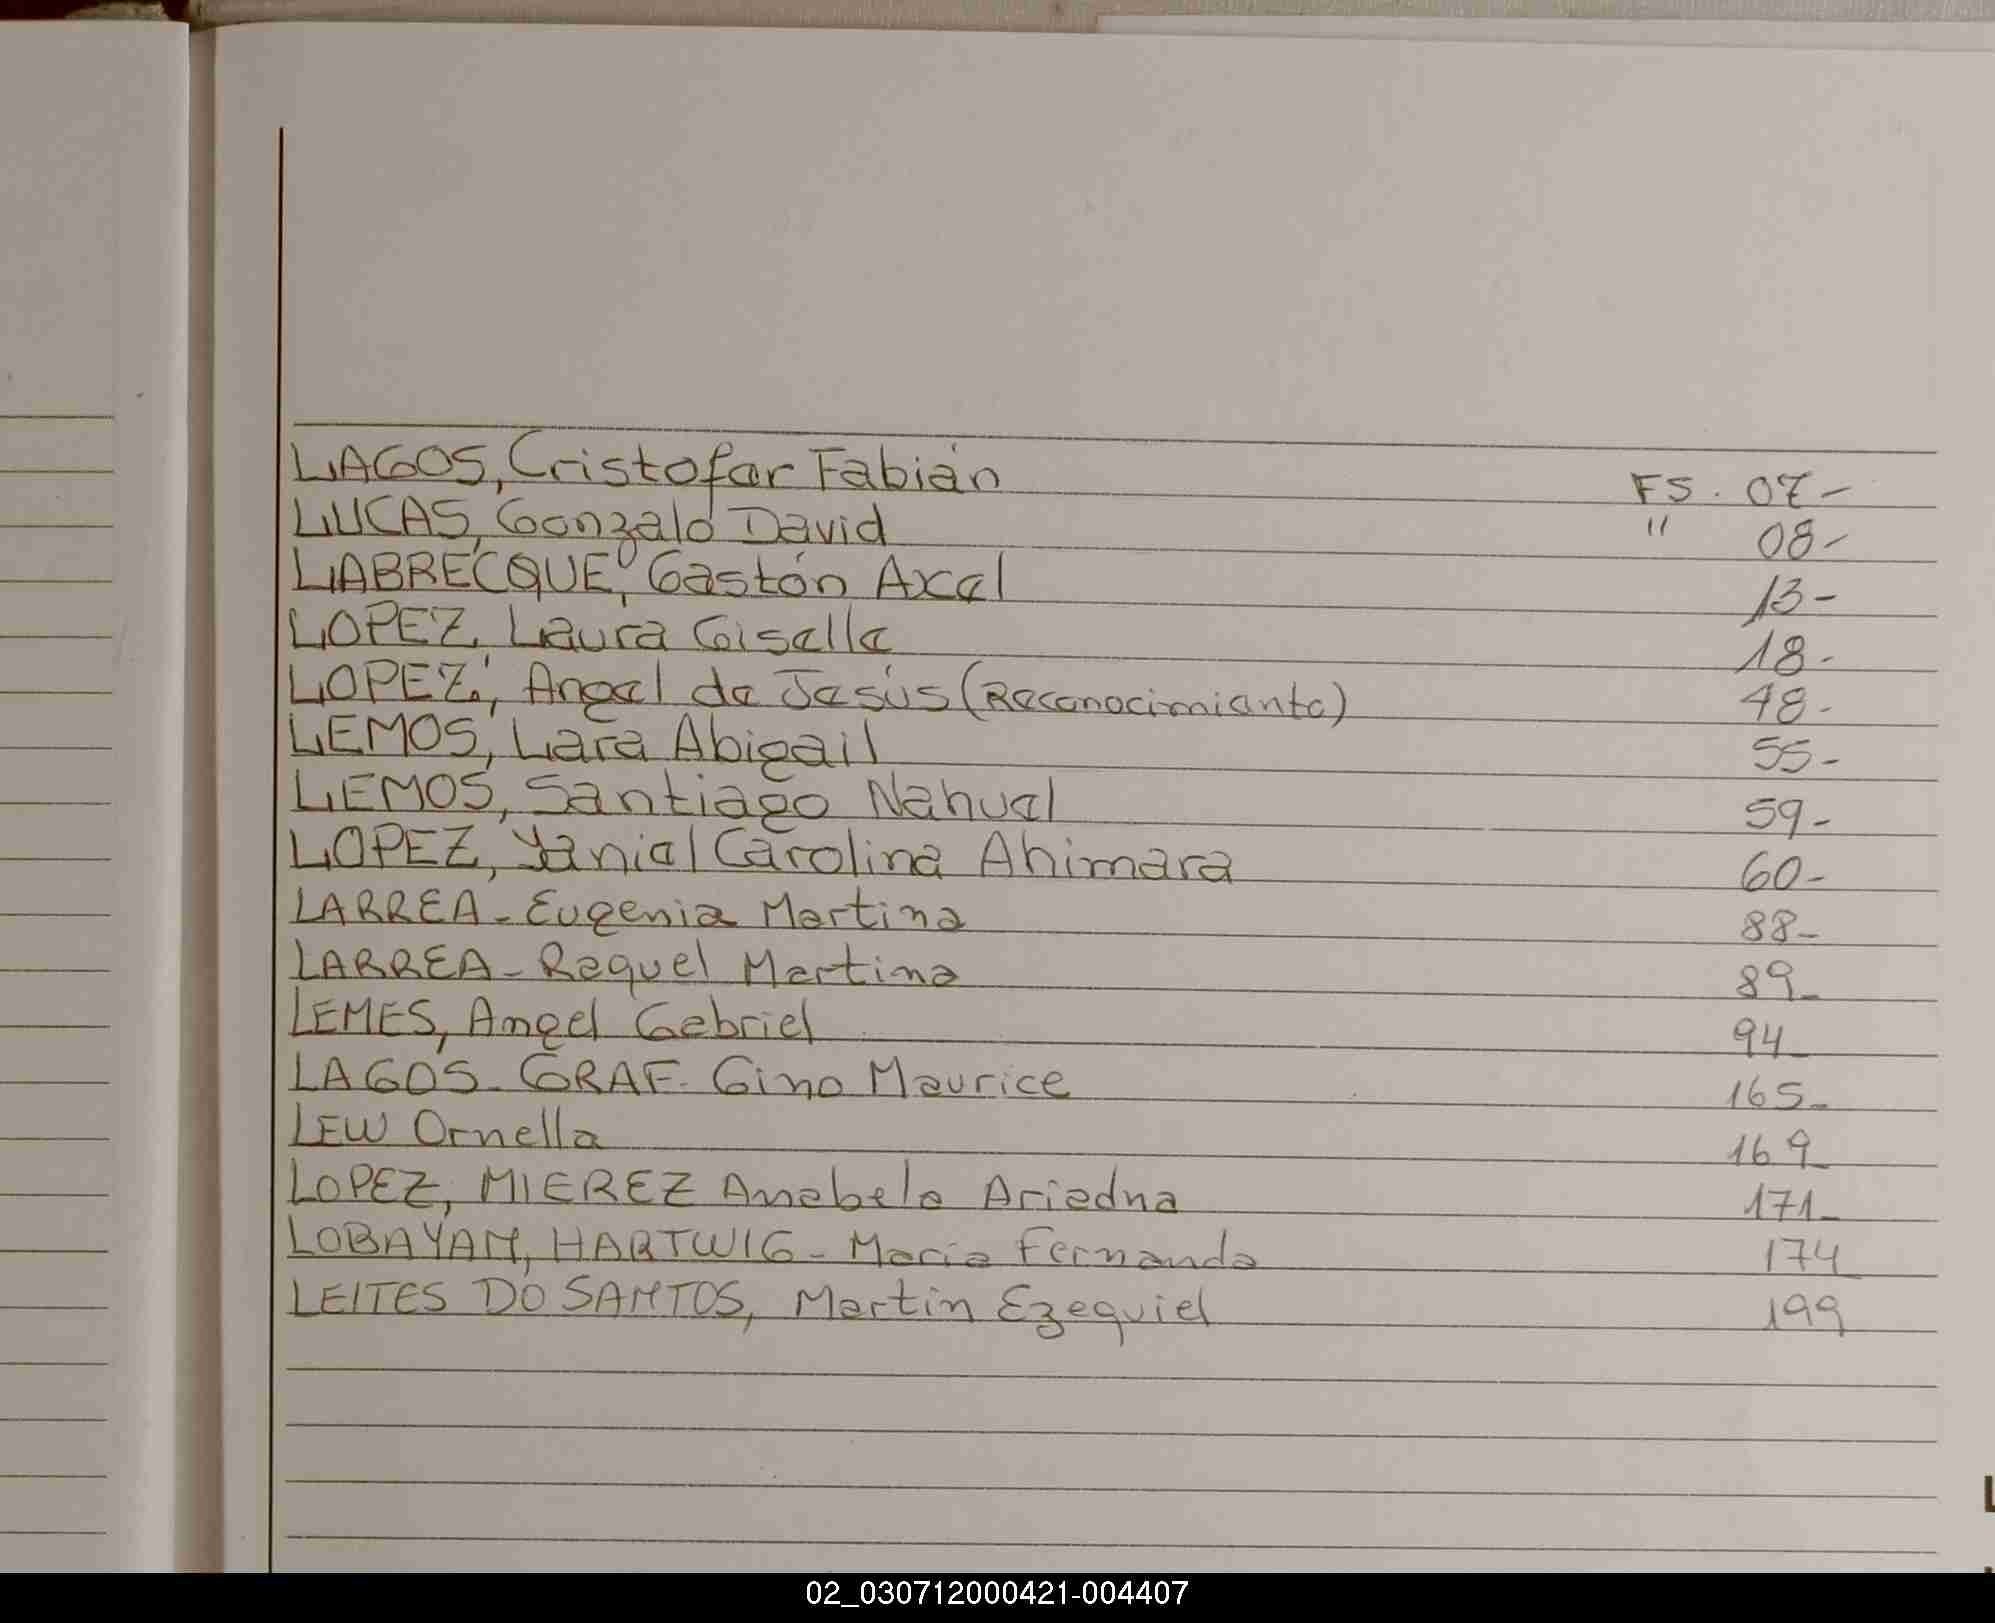 LAGOS, Cristofer Fabián FS. 07-
LUCAS, Gonzalo David " 08-
LABRECQUE, Gastón Axel 13-
LOPEZ, Laura Giselle 18-
LOPEZ, Angel de Jesús (Reconocimiento) 48-
LEMOS, Lara Abigail 55-
LEMOS, Santiago Nahuel 59-
LOPEZ, Yaniel Carolina Ahimara 60-
LARREA- Eugenia Martina 88-
LARREA- Raquel Martina 89-
LEMES, Angel Gabriel 94-
LAGOS- GRAF- Gino Maurice 165-
LEW Ornella 169-
LOPEZ, MIEREZ Anabela Ariadna 171-
LOBAYAN, HARTWIG- Maria Fernanda 174-
LEITES DO SANTOS, Martin Ezequiel 199
L
02_030712000421-004407